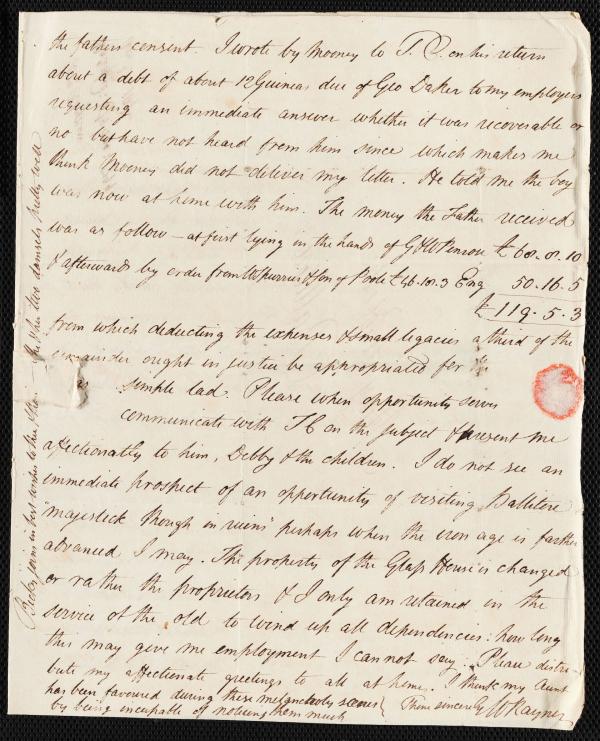 the fathers consent. I wrote by Mooney to T. C. on his return
about a debt of about 12 Guineas due of Geo Daker to my employers
requesting an immediate answer whether it was recoverable or
no but have not heard from him since which makes me
think Mooney did not deliver my letter. He told me the boy
was now at home with him. The money the Father received
was as follow – at first lying in the hands of G & W Penrose £68. 8. 10
& afterwards by order from & Son of Poole £46.18.3 Eng 50. 16. 5
£119. 5. 3
from which deducting the expenses & small legacies a third of the
remainder ought in justice be appropriated for
simple lad. Please when opportunity serves
communicate with T C on the subject & present me
affectionately to him, Debby & the children. I do not see an
immediate prospect of an opportunity of visiting Ballitore
"majestick though in ruins" perhaps when the iron age is farther
advanced I may. The property of the Glass House is changed
or rather the proprietors & I only am retained in the
service of the old to wind up all dependencies: how long
this may give me employment I cannot say. Please distri-
bute my affectionate greetings to all at home. I think my Aunt
has been favoured during these melancholy scenes
by being incapable of noticing them much
Thine sincerely W Rayner
Becky joins in best wishes to thee & the two damsels pretty well